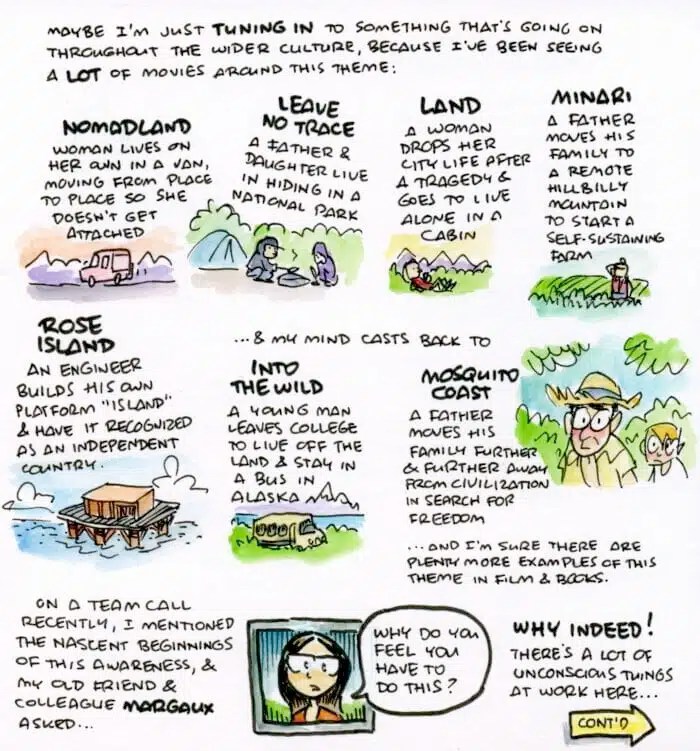 MAYBE I'M JUST TUNING IN TO SOMETHING THAT'S GOING ON
THROUGHOUT THE WIDER CULTURE, BECAUSE I'VE BEEN SEEING
A LOT OF MOVIES AROUND THIS THEME:
NOMADLAND
WOMAN LIVES ON
HER OWN IN A VAN,
MOVING FROM PLACE
TO PLACE SO SHE
DOESN'T GET
ATTACHED
LEAVE
NO TRACE
A FATHER &
DAUGHTER LIVE
IN HIDING IN A
NATIONAL PARK
LAND
A WOMAN
DROPS HER
CITY LIFE AFTER
A TRAGEDY &
GOES TO LIVE
ALONE IN A
CABIN
MINARI
A FATHER
MOVES HIS
FAMILY TO
A REMOTE
HILLBILLY
MOUNTAIN
TO START A
SELF-SUSTAINING
FARM
ROSE
ISLAND
AN ENGINEER
BUILDS HIS OWN
PLATFORM "ISLAND"
& HAVE IT RECOGNIZED
AS AN INDEPENDENT
COUNTRY.
...& MY MIND CASTS BACK TO
INTO
THE WILD
A YOUNG MAN
LEAVES COLLEGE
TO LIVE OFF THE
LAND & STAY IN
A BUS IN
ALASKA
MOSQUITO
COAST
A FATHER
MOVES HIS
FAMILY FURTHER
& FURTHER AWAY
FROM CIVILIZATION
IN SEARCH FOR
FREEDOM
...AND I'M SURE THERE ARE
PLENTY MORE EXAMPLES OF THIS
THEME IN FILM & BOOKS.
ON A TEAM CALL
RECENTLY, I MENTIONED
THE NASCENT BEGINNINGS
OF THIS AWARENESS, &
MY OLD FRIEND &
COLLEAGUE MARGAUX
ASKED...
WHY DO YOU
FEEL YOU
HAVE TO
DO THIS?
WHY INDEED!
THERE'S A LOT OF
UNCONSCIOUS THINGS
AT WORK HERE...
CONT'D